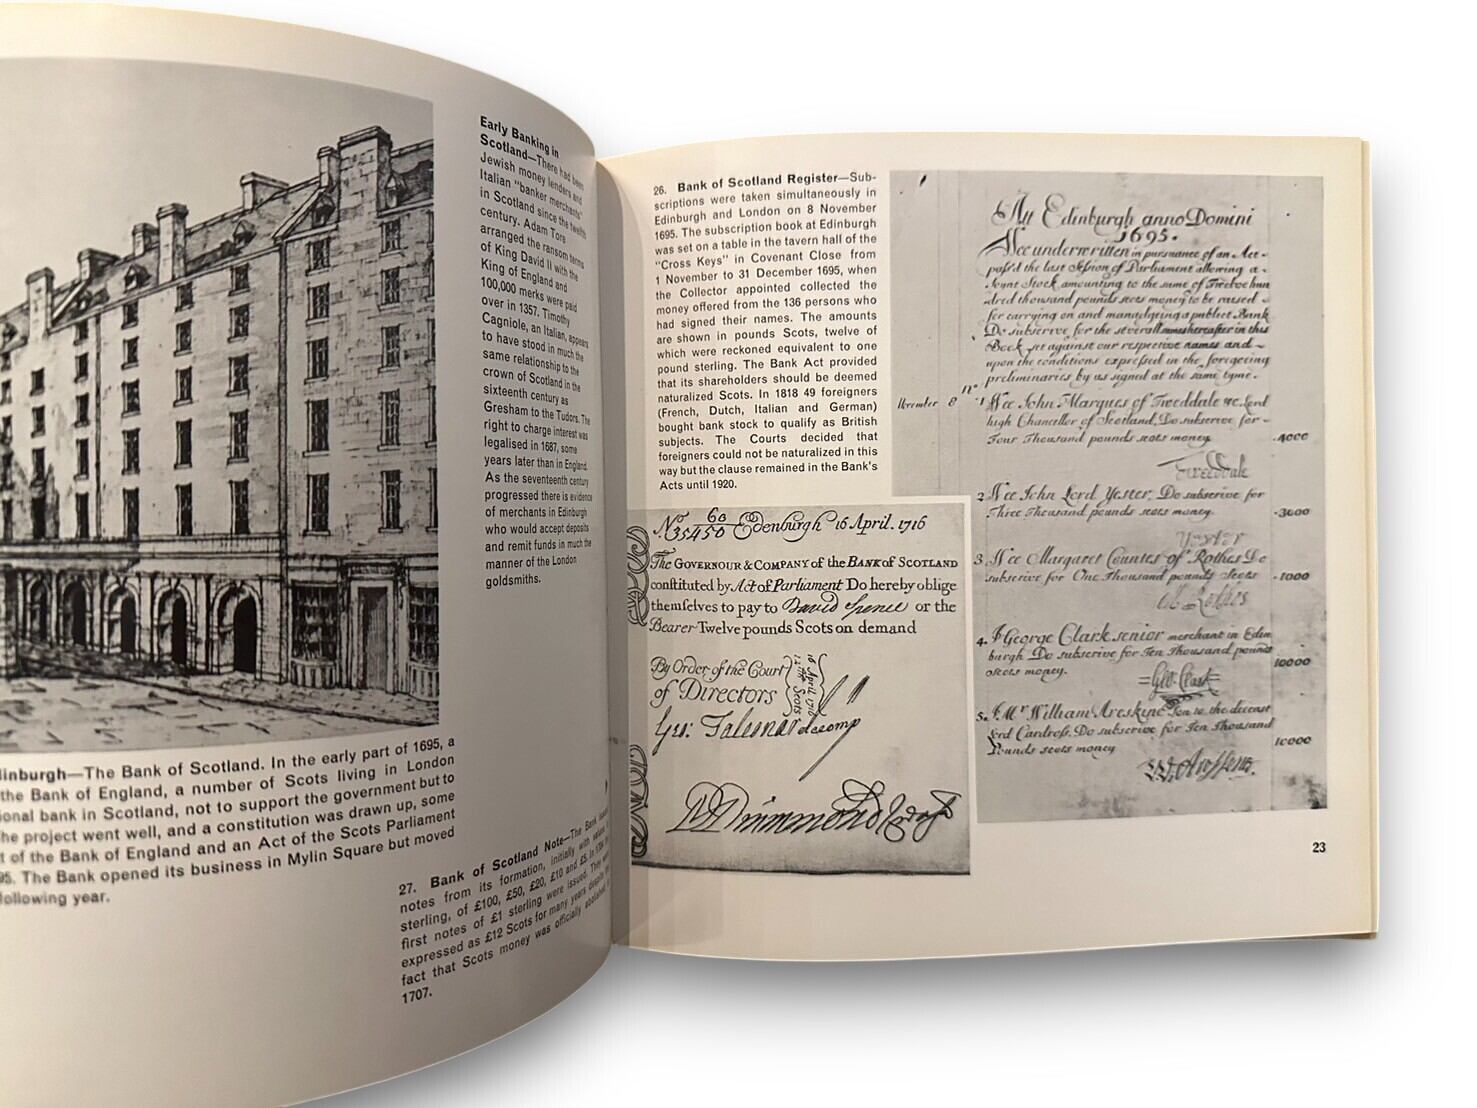 Early Banking in
Scotland—There had been
Jewish money lenders and
Italian "banker merchants"
in Scotland since the twelfth
century. Adam Tore
arranged the ransom terms
of King David II with the
King of England and
100,000 merks were paid
over in 1357. Timothy
Cagniole, an Italian, appears
to have stood in much the
same relationship to the
crown of Scotland in the
sixteenth century as
Gresham to the Tudors. The
right to charge interest was
legalised in 1687, some
years later than in England.
As the seventeenth century
progressed there is evidence
of merchants in Edinburgh
who would accept deposits
and remit funds in much the
manner of the London
goldsmiths.
dinburgh—The Bank of Scotland. In the early part of 1695, a
the Bank of England, a number of Scots living in London
ional bank in Scotland, not to support the government but to
he project went well, and a constitution was drawn up, some
t of the Bank of England and an Act of the Scots Parliament
95. The Bank opened its business in Mylin Square but moved
following year.
27. Bank of Scotland Note—The Bank
notes from its formation, initially with
sterling, of £100, £50, £20, £10 and £5. In
first notes of £1 sterling were issued. They
expressed as £12 Scots for many years despite
fact that Scots money was officially abolished
1707.
26. Bank of Scotland Register—Sub-
scriptions were taken simultaneously in
Edinburgh and London on 8 November
1695. The subscription book at Edinburgh
was set on a table in the tavern hall of the
"Cross Keys" in Covenant Close from
1 November to 31 December 1695, when
the Collector appointed collected the
money offered from the 136 persons who
had signed their names. The amounts
are shown in pounds Scots, twelve of
which were reckoned equivalent to one
pound sterling. The Bank Act provided
that its shareholders should be deemed
naturalized Scots. In 1818 49 foreigners
(French, Dutch, Italian and German)
bought bank stock to qualify as British
subjects. The Courts decided that
foreigners could not be naturalized in this
way but the clause remained in the Bank's
Acts until 1920.
No 60/35450 Edenburgh 16 April. 1716
The GOVERNOUR & COMPANY of the BANK of SCOTLAND
constituted by Act of Parliament Do hereby oblige
themselves to pay to David Spence or the
Bearer Twelve pounds Scots on demand
By Order of the Court
of Directors
16 April 1716
12 lib Scots
Att Edinburgh anno Domini
1695.
Wee underwritten in pursuance of an Act
pass'd the last Session of Parliament allowing a
Joynt Stock amounting to the sume of Twelve hun
dred thousand pounds scots money to be raised
for carrying on and managdgeing a publict Bank
Do subscrive for the severall summes hereafter in this
Book set against our respective names and
upon the conditions expressed in the foregoeing
preliminaries by us signed at the same tyme.
November 8 no 1 Wee John Marques of Tweeddale &c. Lord
high Chancellor of Scotland, Do subscrive for
Four Thousand pounds scots money. 4000
Tweeddale
2 Wee John Lord Yester, Do subscrive for
Three Thousand pounds scots money. 3000
Yester
3. Wee Margaret Countes of Rothes Do
subscrive for One Thousand pounds scots 1000
Rothes
4. I George Clark senior merchant in Edin
burgh Do subscrive for Ten Thousand pounds
scots money. 10000
Geo: Clark
5. I Mr William Areskine Son to the deceast
Lord Cardross, Do subscrive for Ten Thousand
Pounds scots money 10000
23